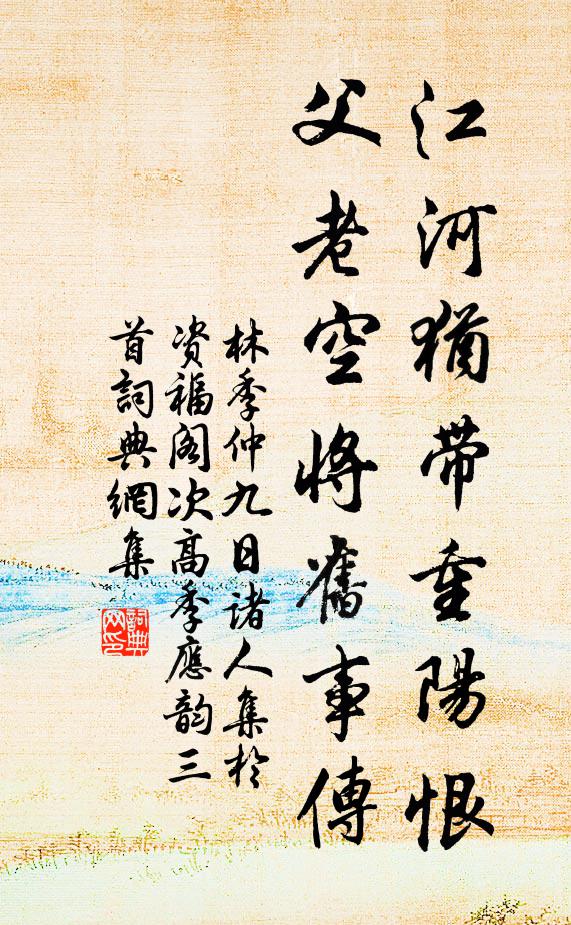 江河猶带重陽恨
父老空将舊事傳
林季仲九日诸人集於
资福阁次高季應韵三
首詞典網集
詞典
网印